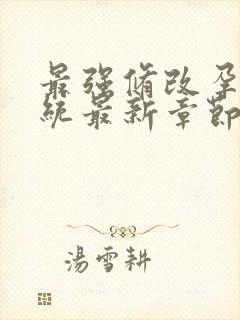 最强脩改孕
统最新章節
湯雪耕